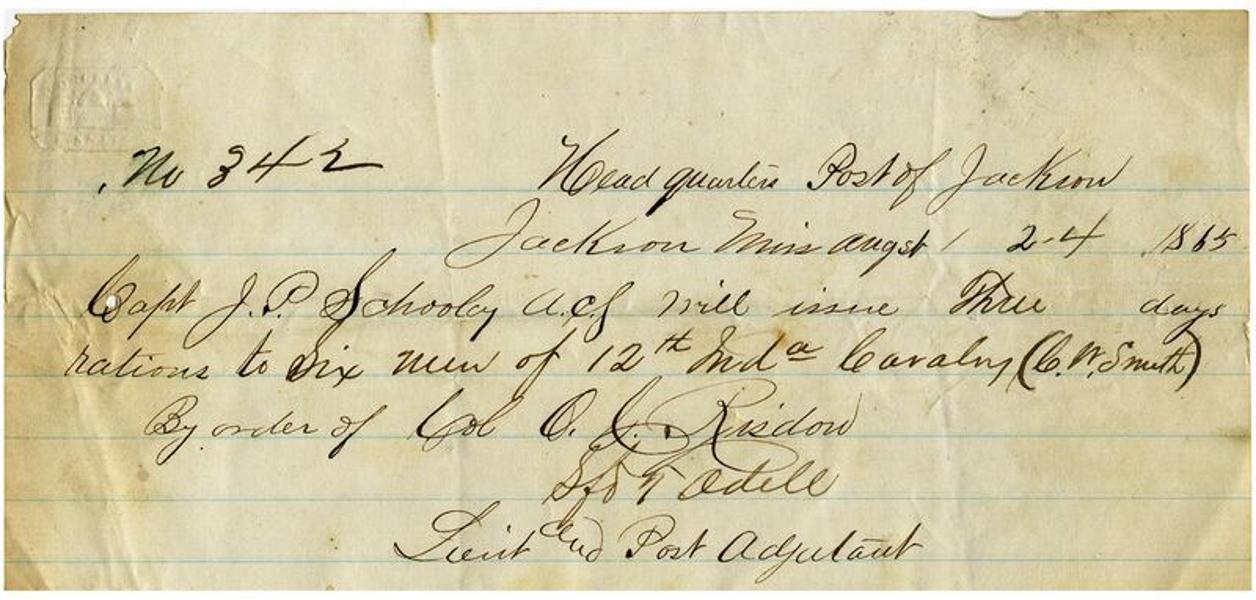 No 342 Headquarters Post of Jackson
Jackson Miss Augst 24 1865
Capt J. P. Schooley A.C.S will issue Three days
rations to Six men of 12th Inda Cavalry (C. W. Smith)
By order of Col O. J. Risdon
Odell
Lieut and Post Adjutant